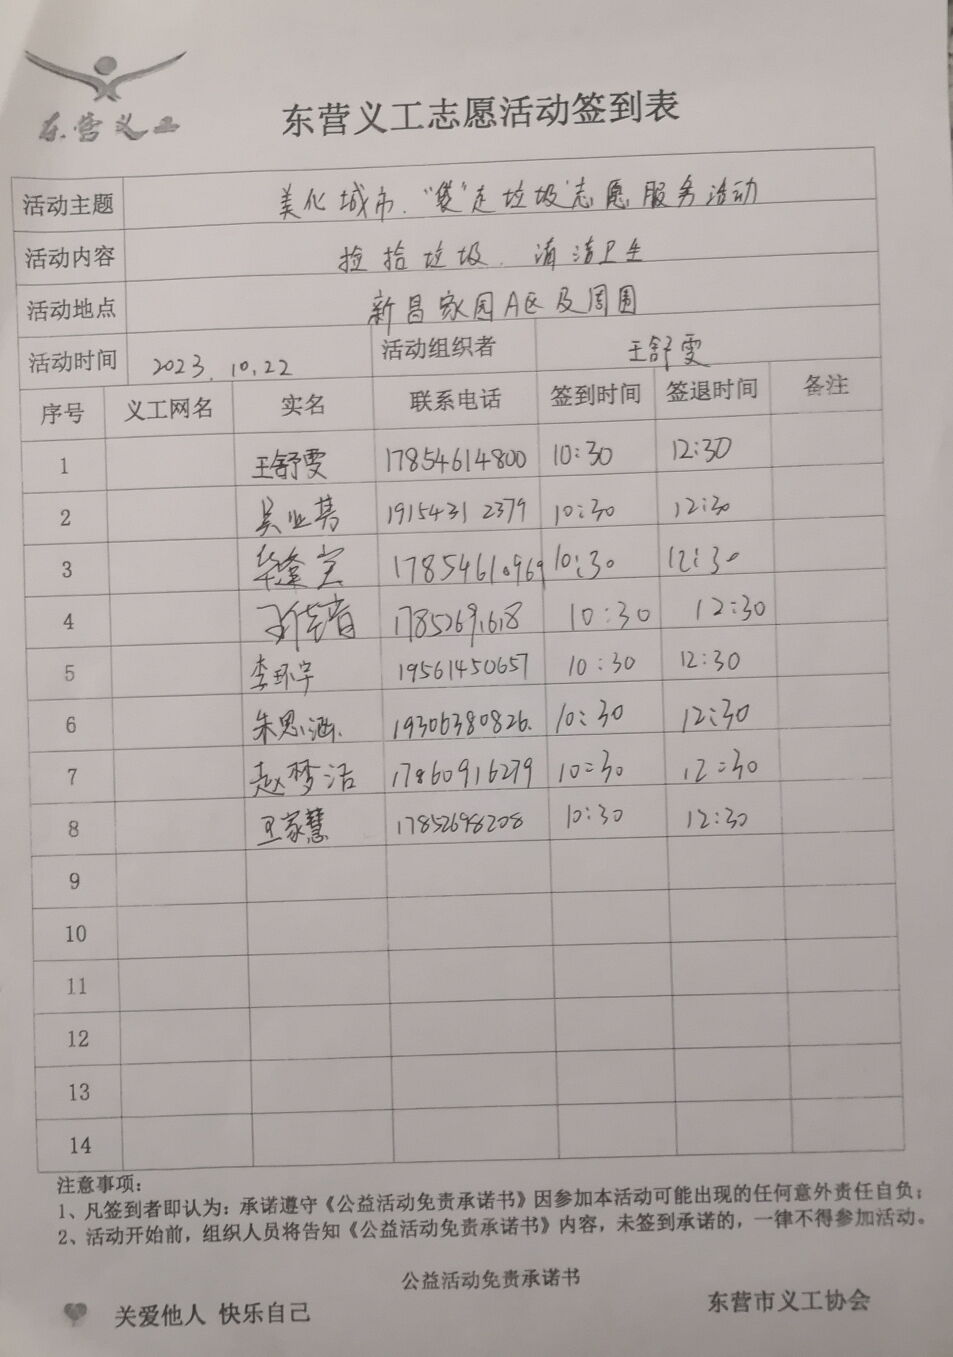 东营义工
东营义工志愿活动签到表
活动主题 美化城市.“袋”走垃圾”志愿服务活动
活动内容 捡拾垃圾.清洁卫生
活动地点 新昌家园A区及周围
活动时间 2023.10.22 活动组织者 王舒雯
序号 义工网名 实名 联系电话 签到时间 签退时间 备注
1 王舒雯 17854614800 10:30 12:30
2 19154312379 10:30 12:30
3 10:30 12:30
4 10:30 12:30
5 李环宇 19561450657 10:30 12:30
6 朱思涵. 19306380826. 10:30 12:30
7 赵梦洁 17860916279 10:30 12:30
8 王家慧 17852698208 10:30 12:30
9
10
11
12
13
14
注意事项:
1、凡签到者即认为:承诺遵守《公益活动免责承诺书》因参加本活动可能出现的任何意外责任自负;
2、活动开始前,组织人员将告知《公益活动免责承诺书》内容,未签到承诺的,一律不得参加活动。
公益活动免责承诺书
关爱他人 快乐自己
东营市义工协会